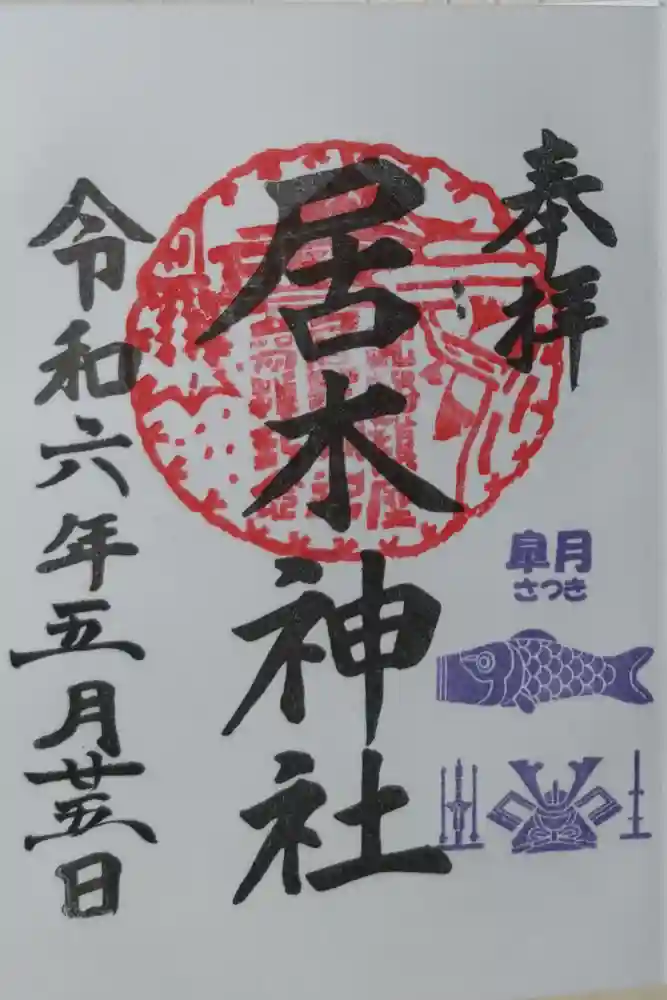 奉拝
居木神社
令和六年五月廿五日
皐月
さつき